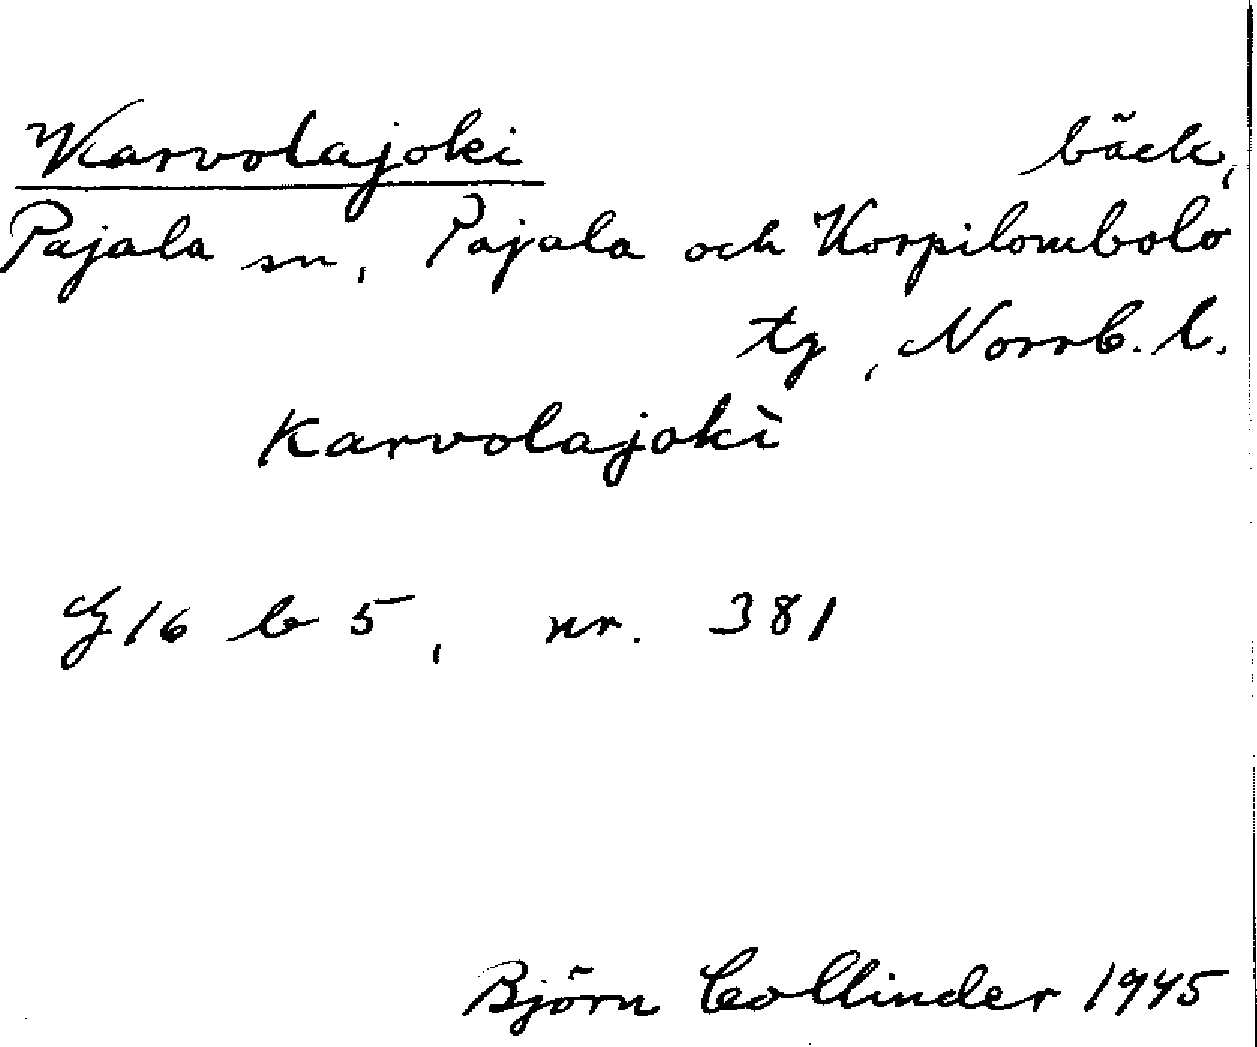 Karvolajoki bäck,
Pajala sn, Pajala och Korpilombolo
tg, Norrb. l.
karvolajokì
G 16 b 5, nr. 381
Björn Collinder 1945